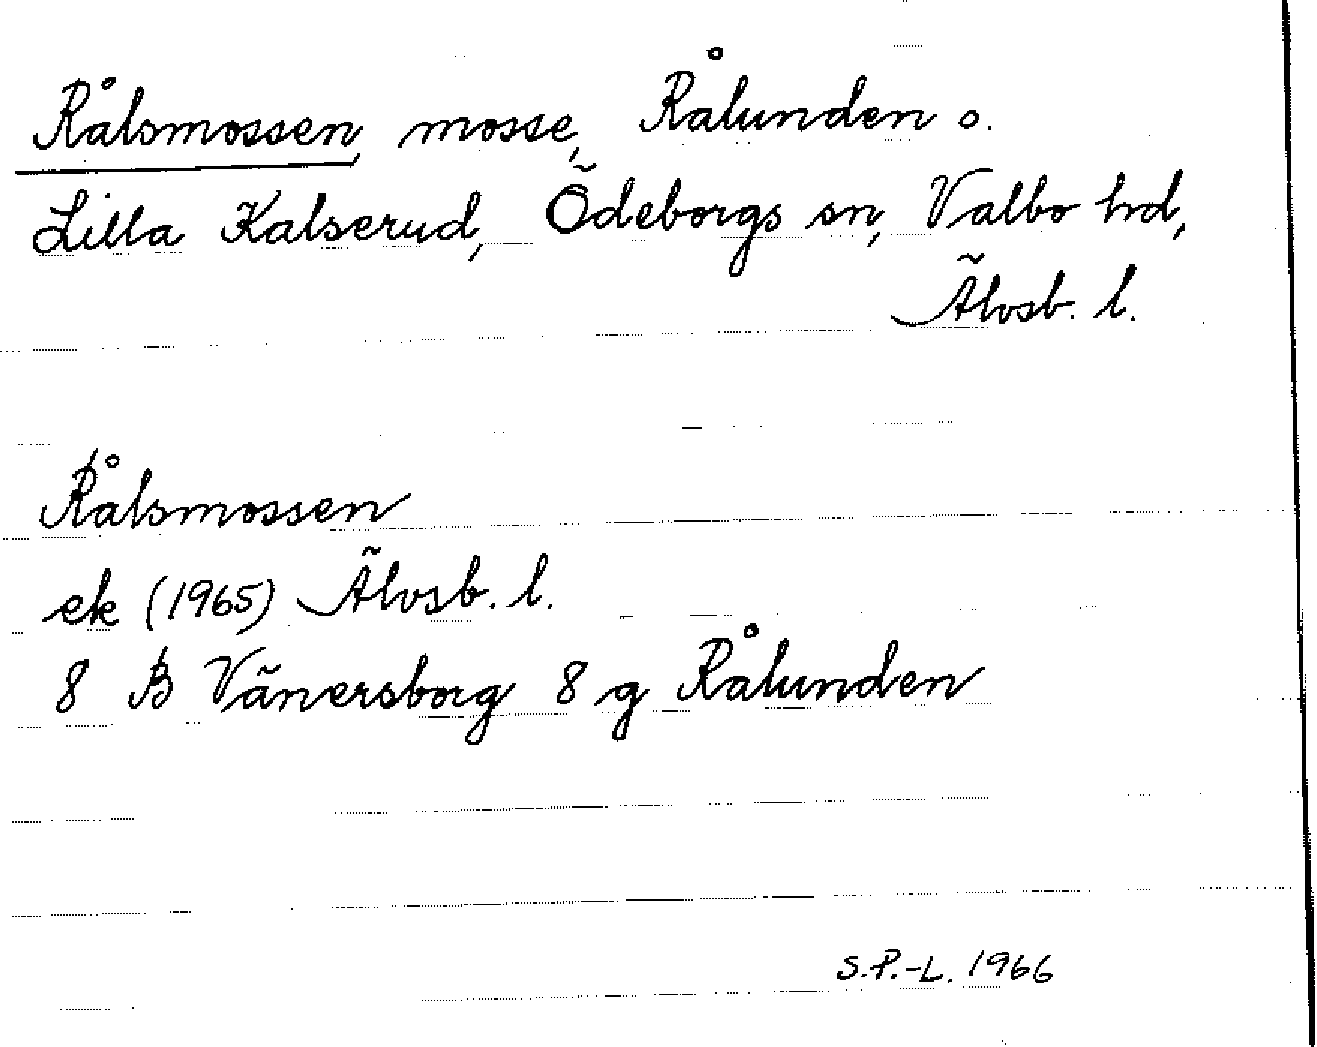 Rålsmossen, mosse, Rålunden o.
Lilla Kalserud, Ödeborgs sn, Valbo hd,
Älvsb. l.
Rålsmossen
ek (1965) Älvsb. l.
8 B Vänersborg 8 g Rålunden
S.P.-L. 1966